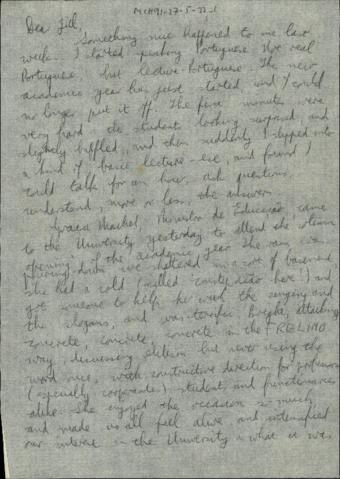 MCH91-27-5-22.1
Dear Jill,
Something nice happened to me last
week. I started speaking Portuguese. Not real
Portuguese, but lecture-Portuguese. The new
academic year has just started, and I could
no longer put it off. The first minutes were
very hard, the students looking surprised, and
slightly baffled, and then suddenly I slipped into
a kind of basic lecture-ese, and found I
could talk for an hour, ask questions,
understand, more or less, the answers.
Graça Machel, Ministra de Educação came
to the University yesterday to attend the
opening of the academic year. The rain was
pouring down, we sheltered in a sort of basement
she had a cold (called here) and
got someone to help her with the singing and
the slogans, and was terrific. Bright, attacking
concrete, concrete, concrete in the FRELIMO
way, discussing elitism but never using the
word once, with constructive direction for professors
(especially cooperantes), students, and functionaries
alike. She enjoyed the occasion so much,
and made us all feel alive and intensified
our interest in the University & what it was